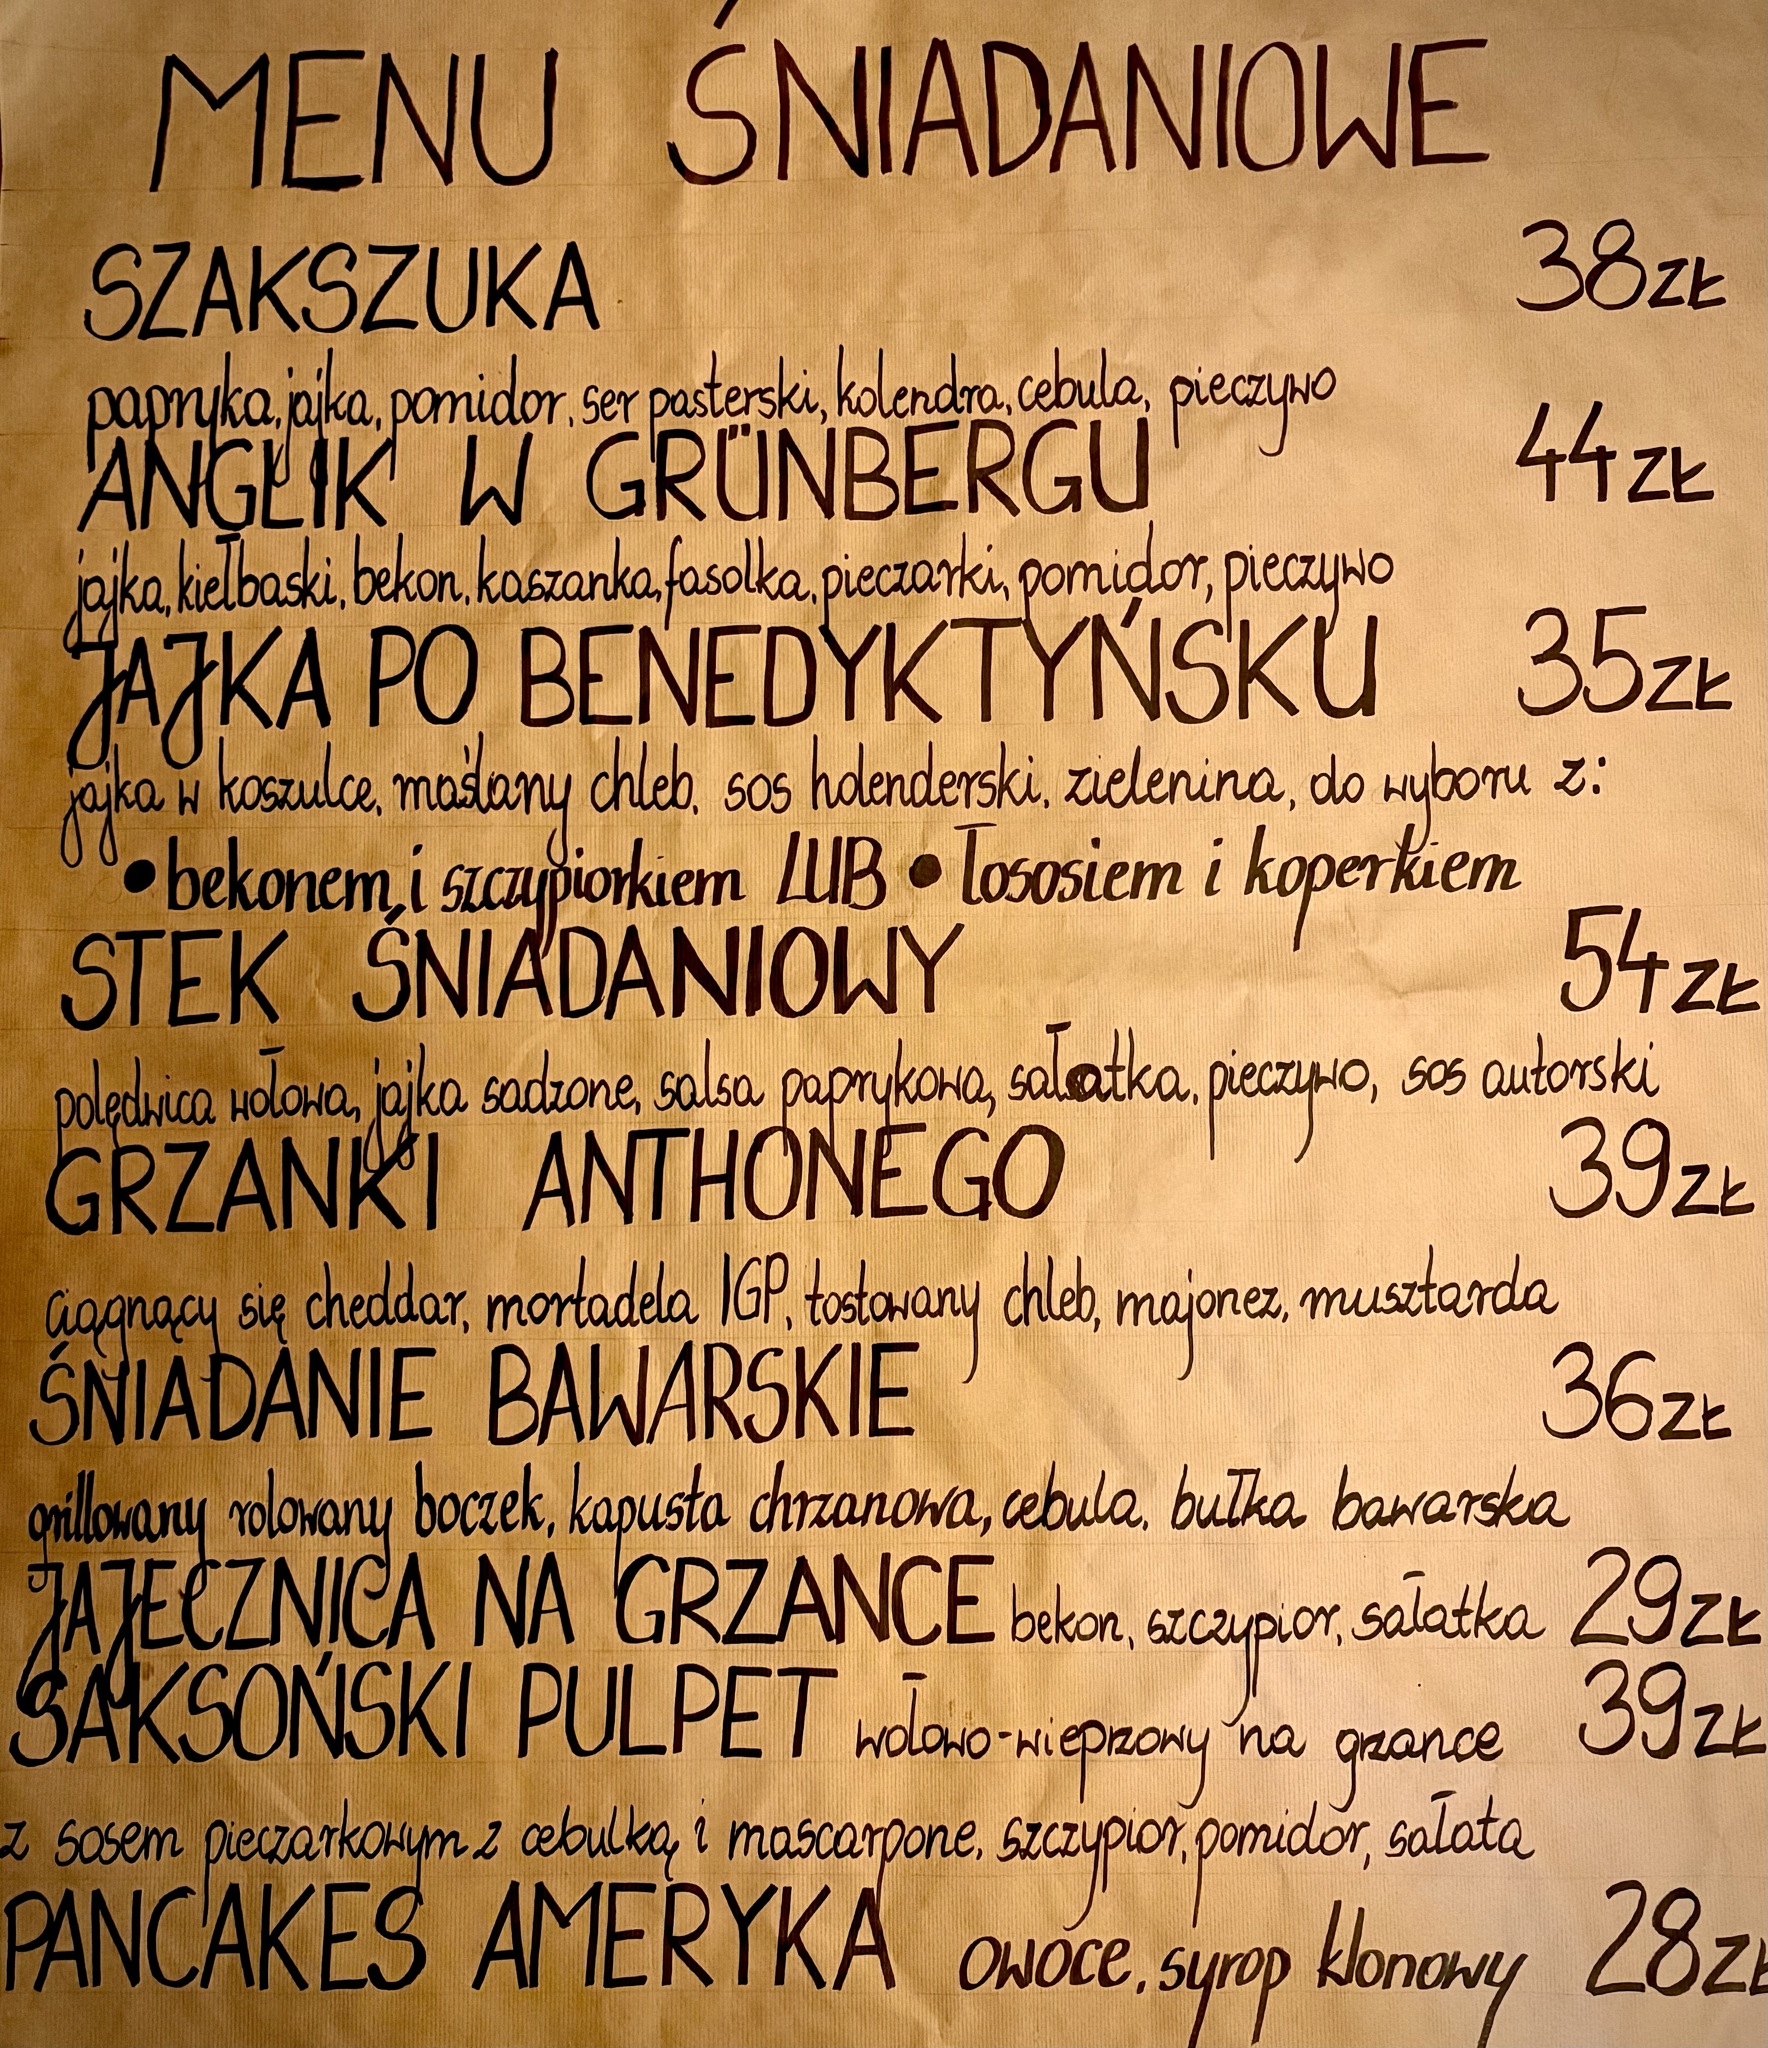 MENU ŚNIADANIOWE
SZAKSZUKA 38ZŁ
papryka, jajka, pomidor, ser pasterski, kolendra, cebula, pieczywo
ANGLIK W GRÜNBERGU 44ZŁ
jajka, kiełbaski, bekon, kaszanka, fasolka, pieczarki, pomidor, pieczywo
JAJKA PO BENEDYKTYŃSKU 35ZŁ
jajka w koszulce, maślany chleb, sos holenderski, zielenina, do wyboru z:
• bekonem i szczypiorkiem LUB • łososiem i koperkiem
STEK ŚNIADANIOWY 54ZŁ
polędwica wołowa, jajka sadzone, salsa paprykowa, sałatka, pieczywo, sos autorski
GRZANKI ANTHONEGO 39ZŁ
ciągnący się cheddar, mortadela IGP, tostowany chleb, majonez, musztarda
ŚNIADANIE BAWARSKIE 36ZŁ
grillowany rolowany boczek, kapusta chrzanowa, cebula, bułka bawarska
JAJECZNICA NA GRZANCE bekon, szczypior, sałatka 29ZŁ
SAKSOŃSKI PULPET wołowo-wieprzowy na grzance 39ZŁ
z sosem pieczarkowym z cebulką i mascarpone, szczypior, pomidor, sałata
PANCAKES AMERYKA owoce, syrop klonowy 28ZŁ